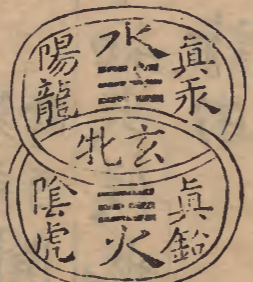 眞汞
水
陽龍
玄牝
眞鉛
火
陰虎